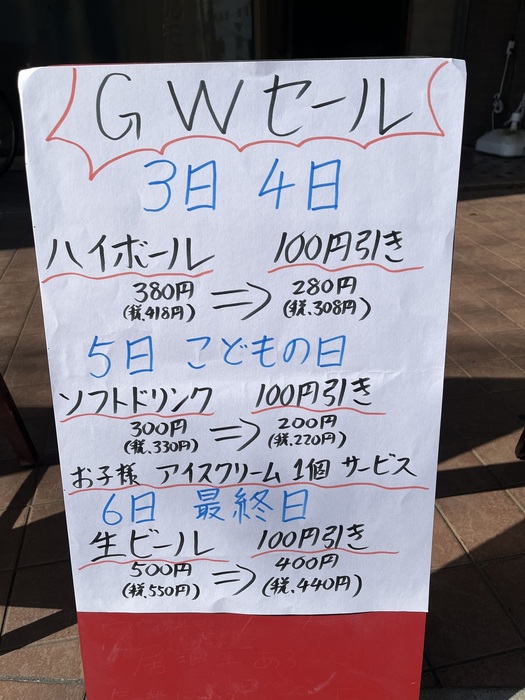 GWセール
3日 4日
ハイボール 100円引き
380円 ⇒ 280円
(税.418円) (税.308円)
5日 こどもの日
ソフトドリンク 100円引き
300円 ⇒ 200円
(税.330円) (税.220円)
お子様 アイスクリーム 1個 サービス
6日 最終日
生ビール 100円引き
500円 ⇒ 400円
(税.550円) (税.440円)